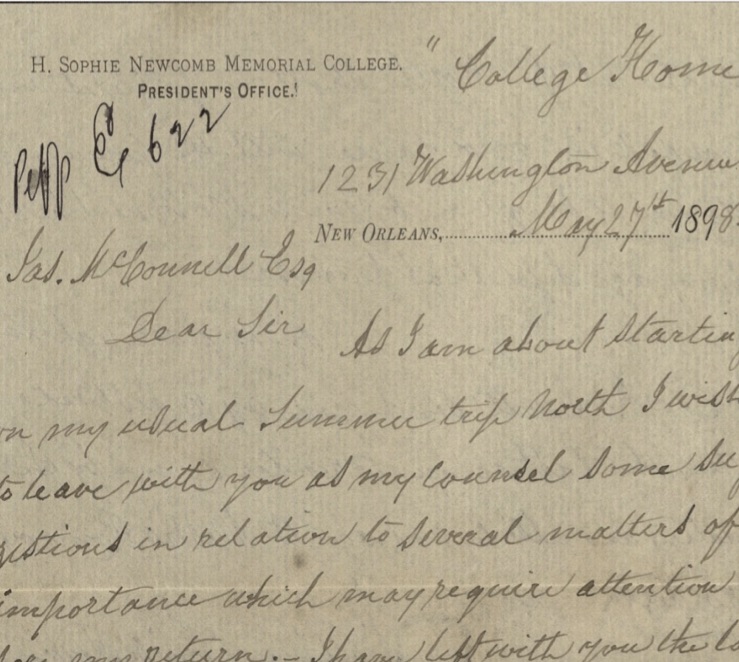 H. SOPHIE NEWCOMB MEMORIAL COLLEGE.
PRESIDENT'S OFFICE.
" College Home
622
1231 Washington Avenue
NEW ORLEANS, May 27th 1898.
Jas. McConnell Esq
Dear Sir
As I am about startin
on my usual Summer trip North I wish
to leave with you as my Counsel some su
gestions in relation to several matters of
importance which may require attention
my return. – I have left with you the